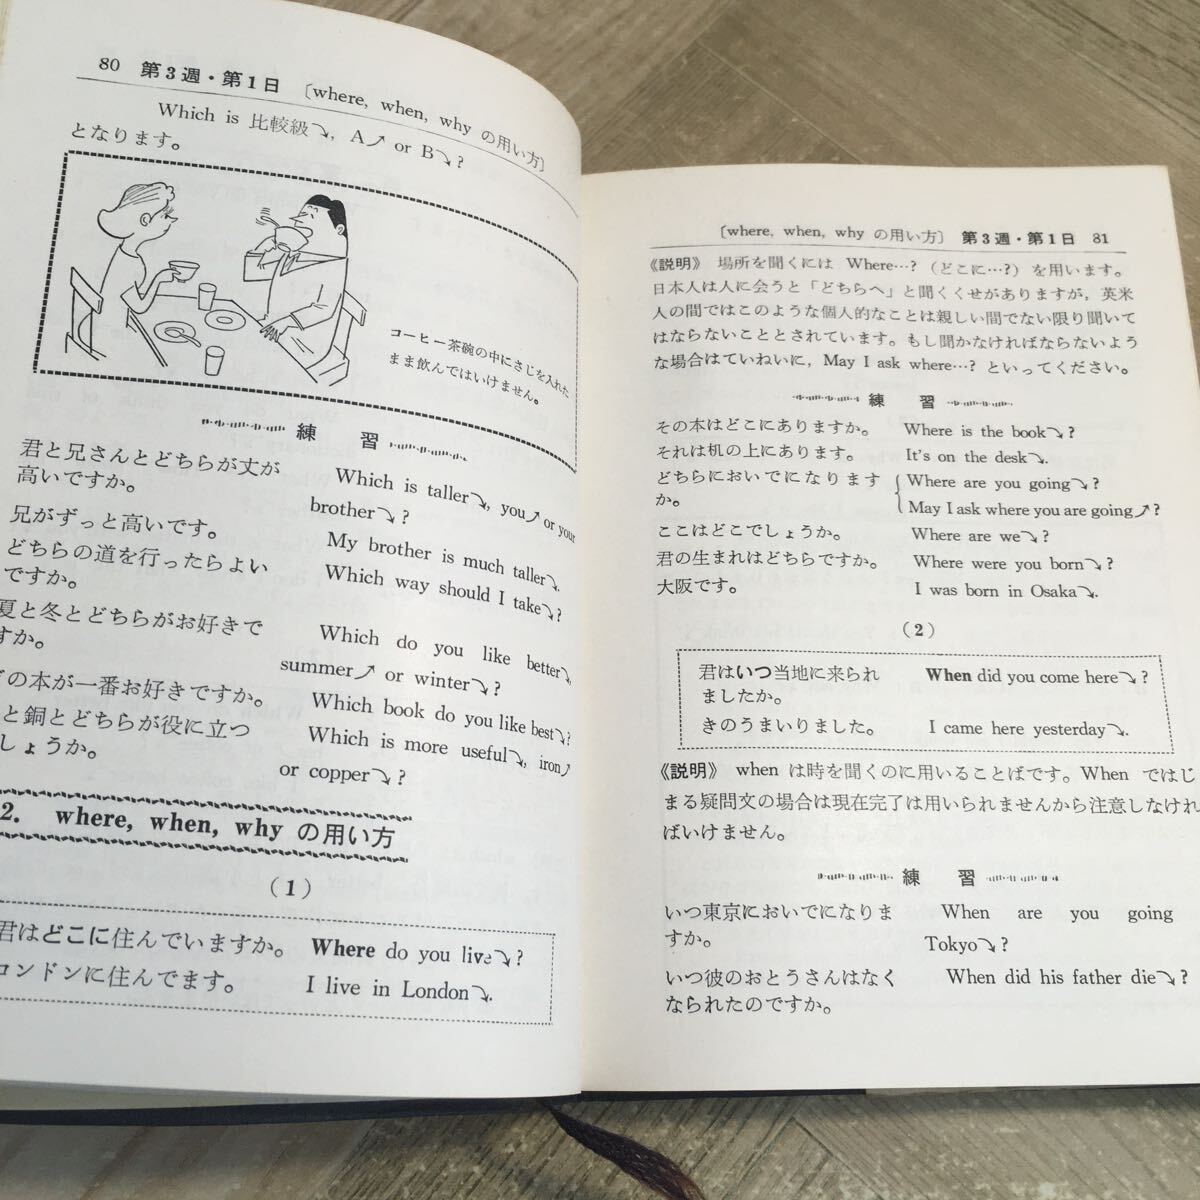 80 第3週・第1日 〔where, when, why の用い方〕
Which is 比較級↘, A↗ or B↘?
となります。
コーヒー茶碗の中にさじを入れた
まま飲んではいけません。
練 習
君と兄さんとどちらが丈が
高いですか。
Which is taller↘, you↗ or your
brother↘?
兄がずっと高いです。
My brother is much taller↘.
どちらの道を行ったらよい
ですか。
Which way should I take↘?
夏と冬とどちらがお好きで
すか。
Which do you like better↘,
summer↗ or winter↘?
の本が一番お好きですか。
Which book do you like best↘?
と銅とどちらが役に立つ
しょうか。
Which is more useful↘, iron↗
or copper↘?
2. where, when, why の用い方
(1)
君はどこに住んでいますか。 Where do you live↘?
ロンドンに住んでます。 I live in London↘.
〔where, when, why の用い方〕 第3週・第1日 81
《説明》 場所を聞くには Where…? (どこに…?) を用います。
日本人は人に会うと「どちらへ」と聞くくせがありますが, 英米
人の間ではこのような個人的なことは親しい間でない限り聞いて
はならないこととされています。もし聞かなければならないよう
な場合はていねいに, May I ask where…? といってください。
練 習
その本はどこにありますか。 Where is the book↘?
それは机の上にあります。 It's on the desk↘.
どちらにおいでになります
か。
Where are you going↘?
May I ask where you are going↗?
ここはどこでしょうか。 Where are we↘?
君の生まれはどちらですか。 Where were you born↘?
大阪です。 I was born in Osaka↘.
(2)
君はいつ当地に来られ
ましたか。
When did you come here↘?
きのうまいりました。 I came here yesterday↘.
《説明》 when は時を聞くのに用いることばです。When ではじ
まる疑問文の場合は現在完了は用いられませんから注意しなけれ
ばいけません。
練 習
いつ東京においでになりま
すか。
When are you going
Tokyo↘?
いつ彼のおとうさんはなく
なられたのですか。
When did his father die↘?